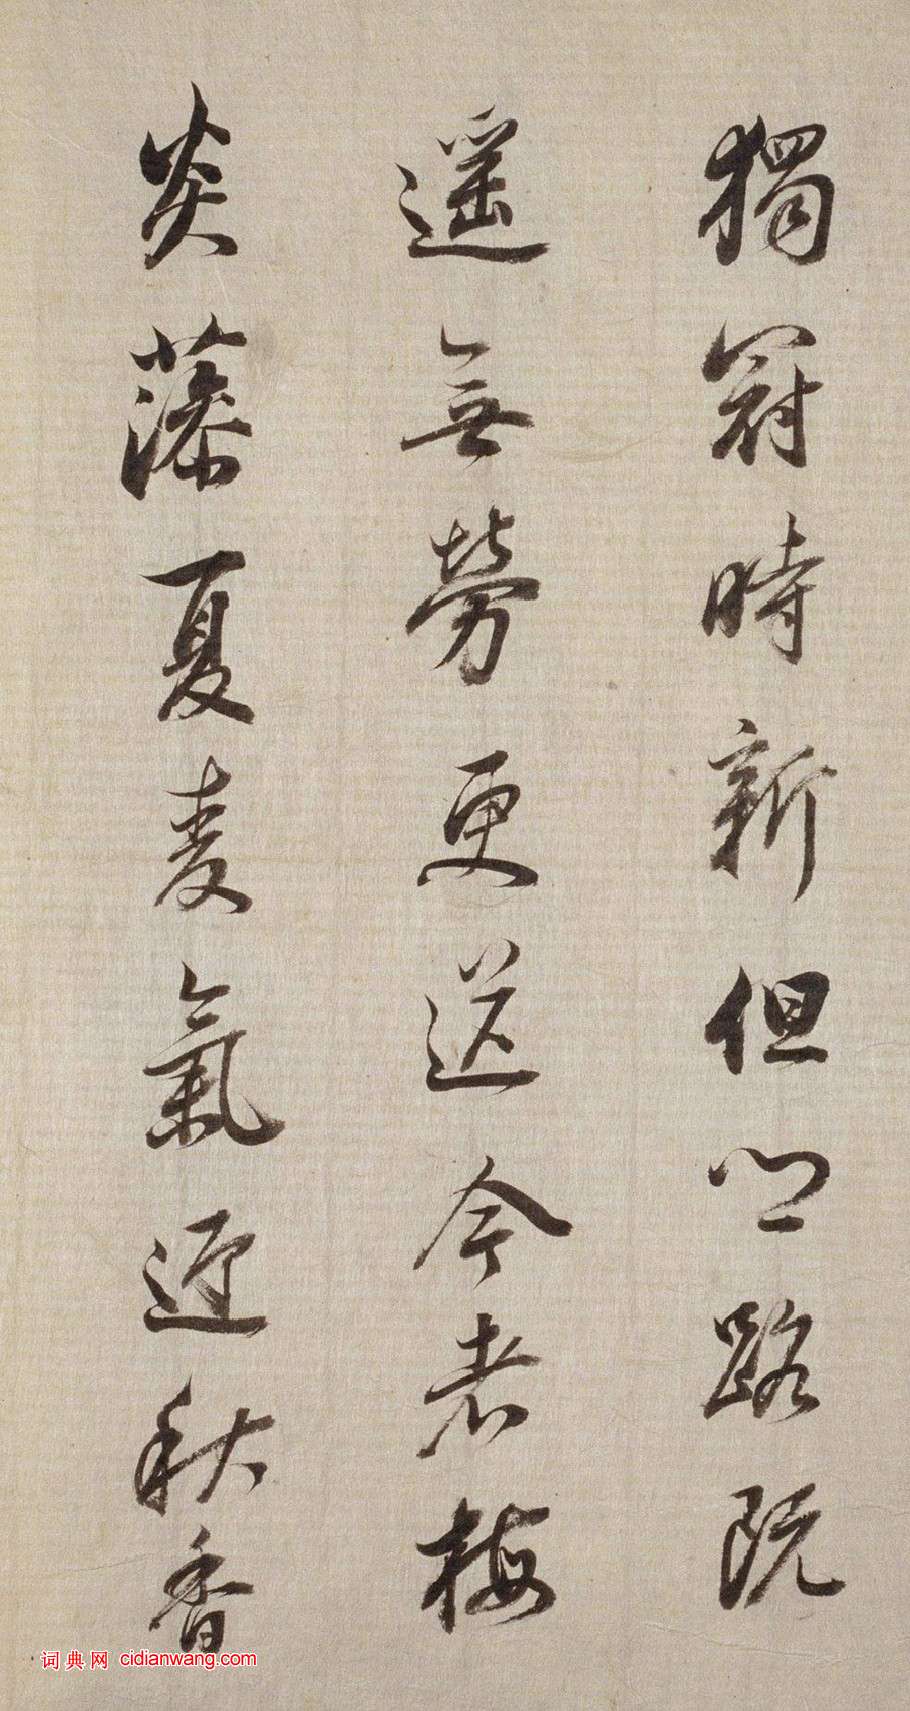 獨冠時新但以路既
遥無勞更送今者梅
炎藻夏麥氣迎秋香
词典网 cidianwang.com